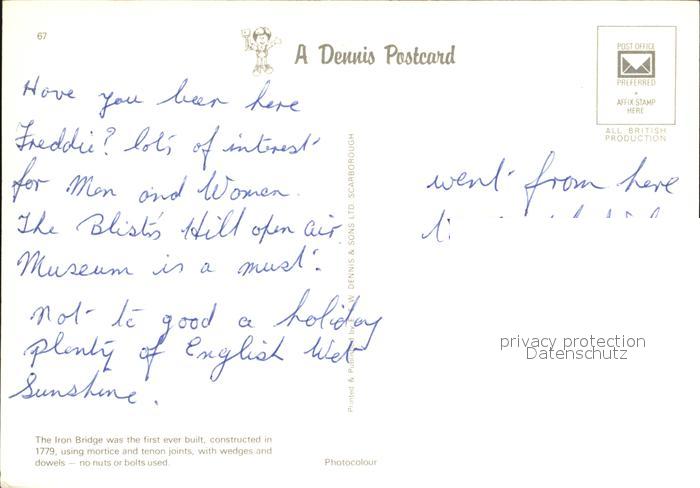 67
A Dennis Postcard
POST OFFICE
PREFERRED
AFFIX STAMP
HERE
ALL BRITISH
PRODUCTION
Have you been here
Freddie? lots of interest
for Men and Women.
The Blists Hill open air
Museum is a must.
Not to good a holiday
plenty of English Wet
Sunshine.
went from here
Printed & Published by W DENNIS & SONS LTD. SCARBOROUGH
privacy protection
Datenschutz
The Iron Bridge was the first ever built, constructed in
1779, using mortice and tenon joints, with wedges and
dowels — no nuts or bolts used.
Photocolour